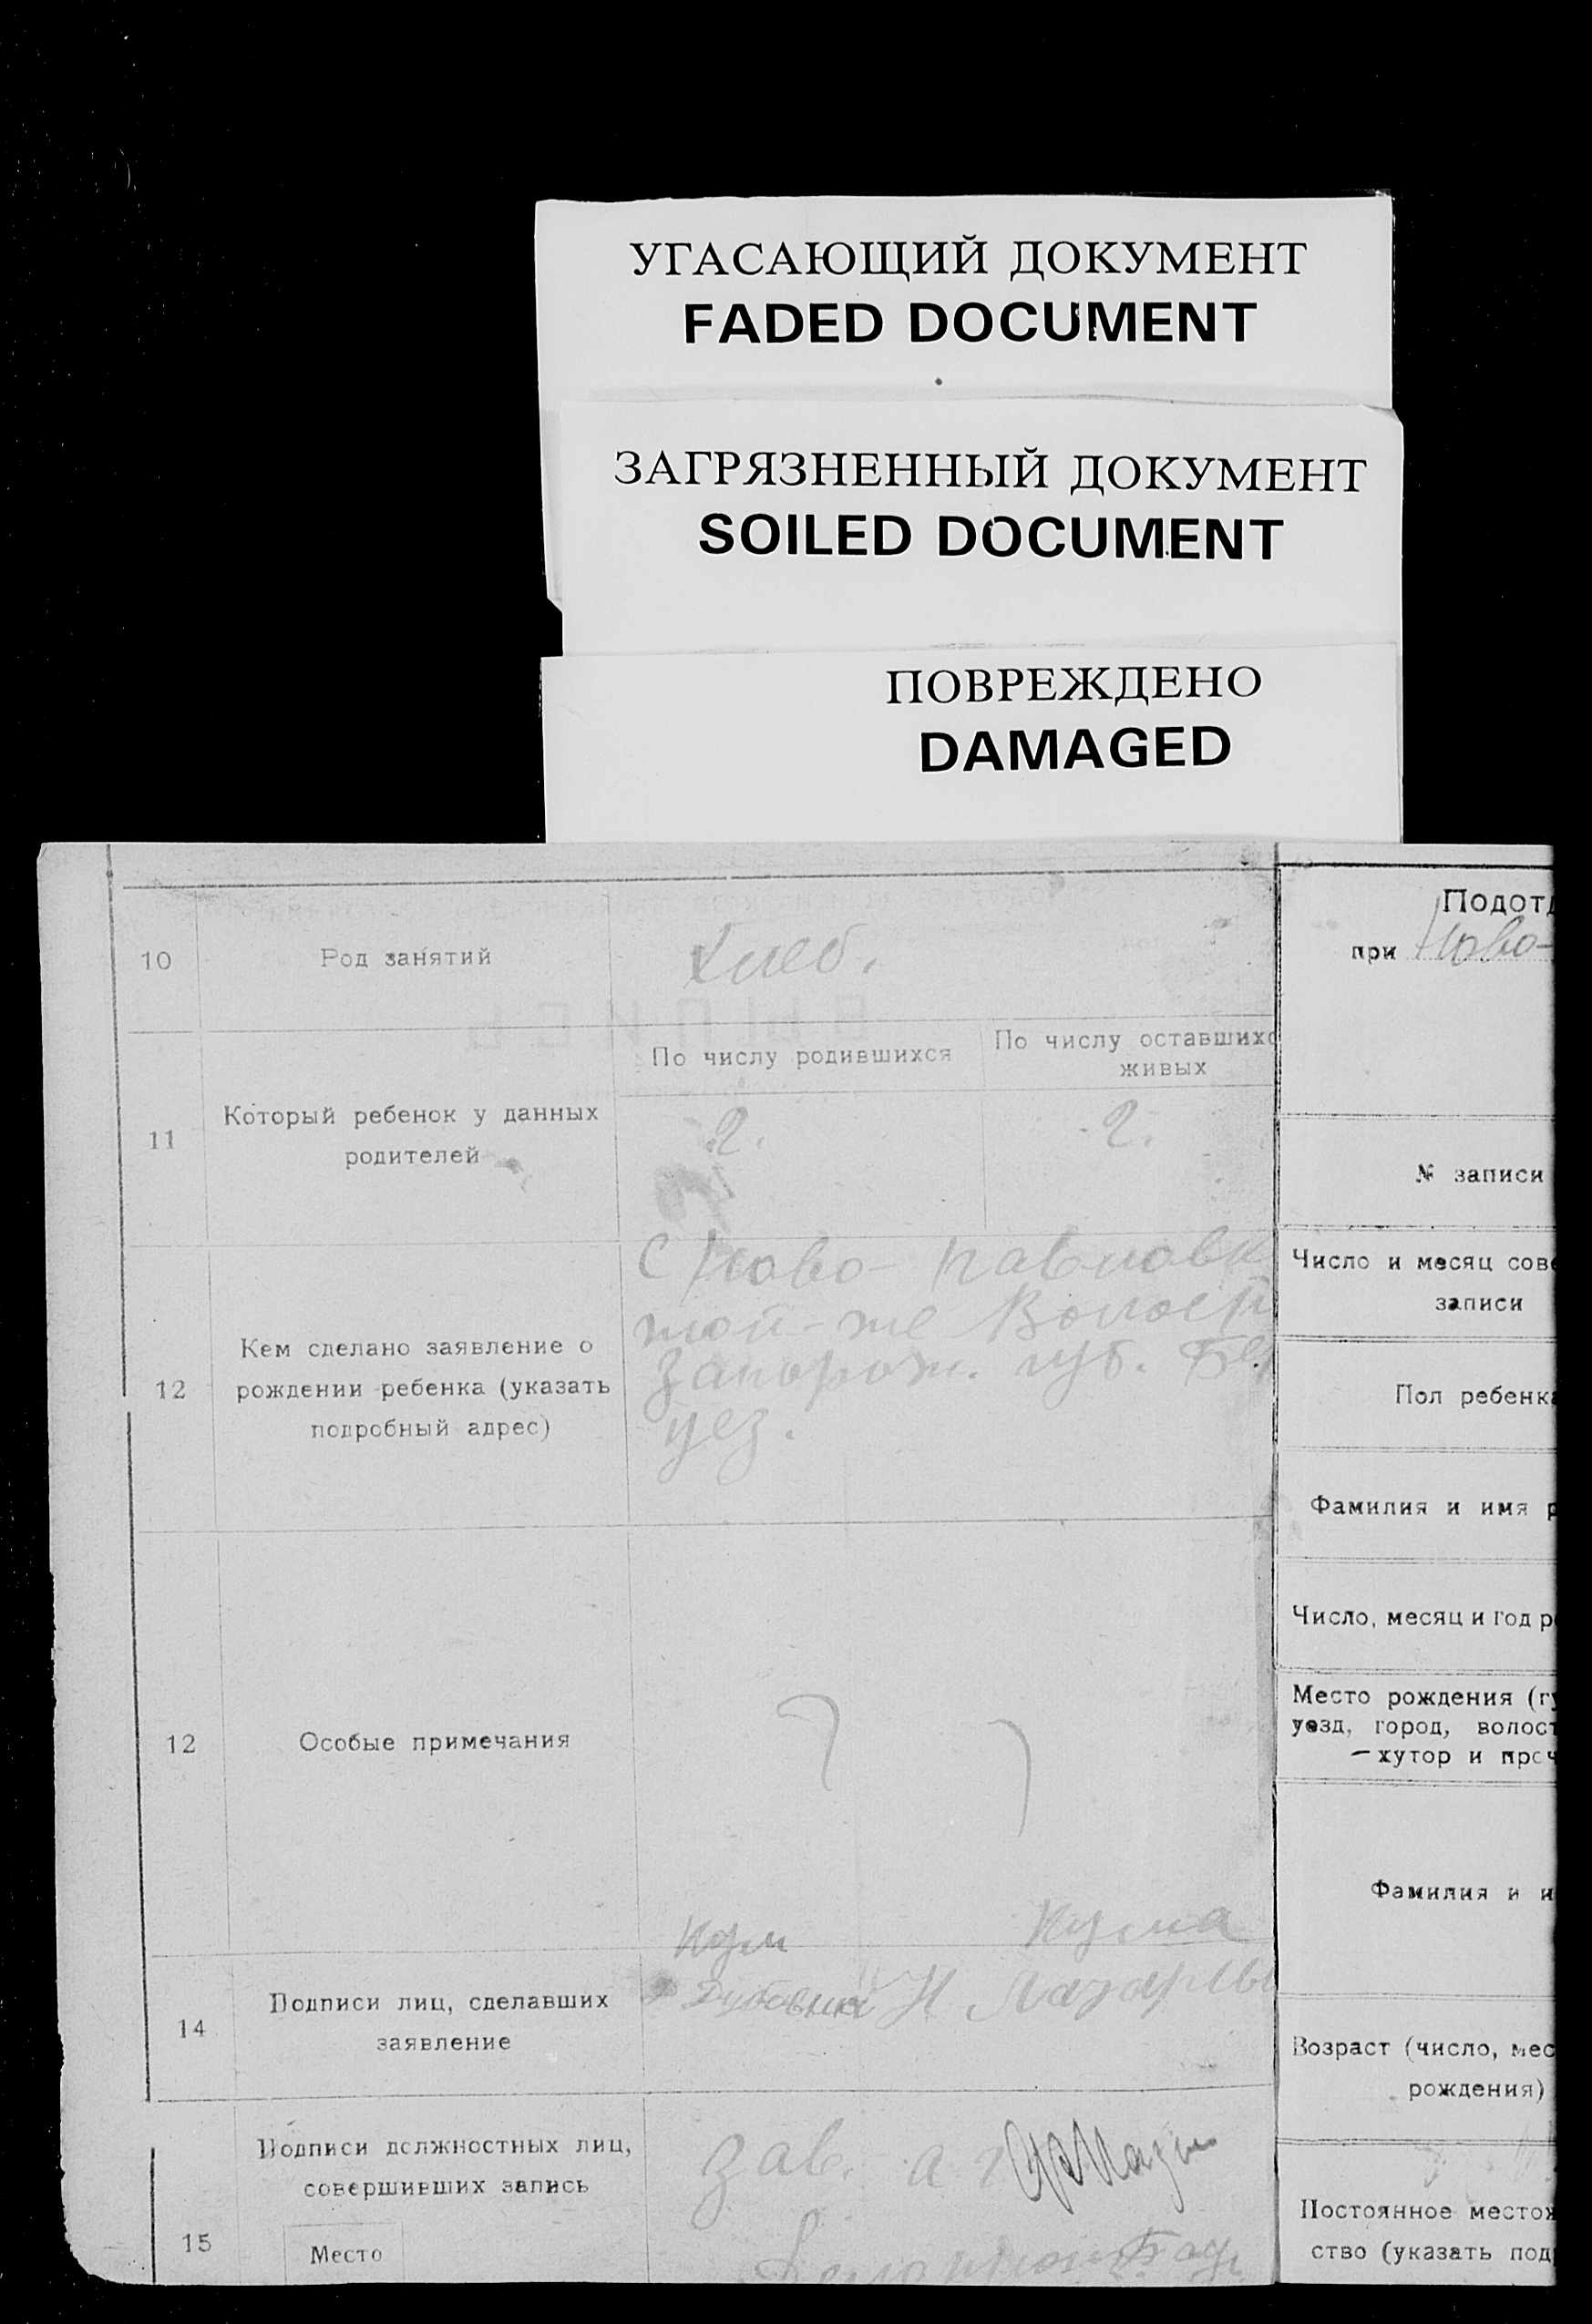 УГАСАЮЩИЙ ДОКУМЕНТ
FADED DOCUMENT
ЗАГРЯЗНЕННЫЙ ДОКУМЕНТ
SOILED DOCUMENT
ПОВРЕЖДЕНО
DAMAGED
10
Род занятий
Хлеб.
11
Который ребенок у данных
родителей
По числу родившихся
По числу оставшихс
живых
2.
2.
12
Кем сделано заявление о
рождении ребенка (указать
подробный адрес)
С Ново-Павловк
той-же Волост
Запорож. губ.
уез.
12
Особые примечания
Кум
Кума
14
Подписи лиц, сделавших
заявление
Н Лазар
15
Подписи должностных лиц,
совершивших запись
Место
Зав.
Подот
при Ново-
№ записи
Число и месяц сов
записи
Пол ребенк
Фамилия и имя р
Число, месяц и год р
Место рождения (г
уезд, город, волост
— хутор и проч
Фамилия и и
Возраст (число, мес
рождения)
Постоянное место
ство (указать под